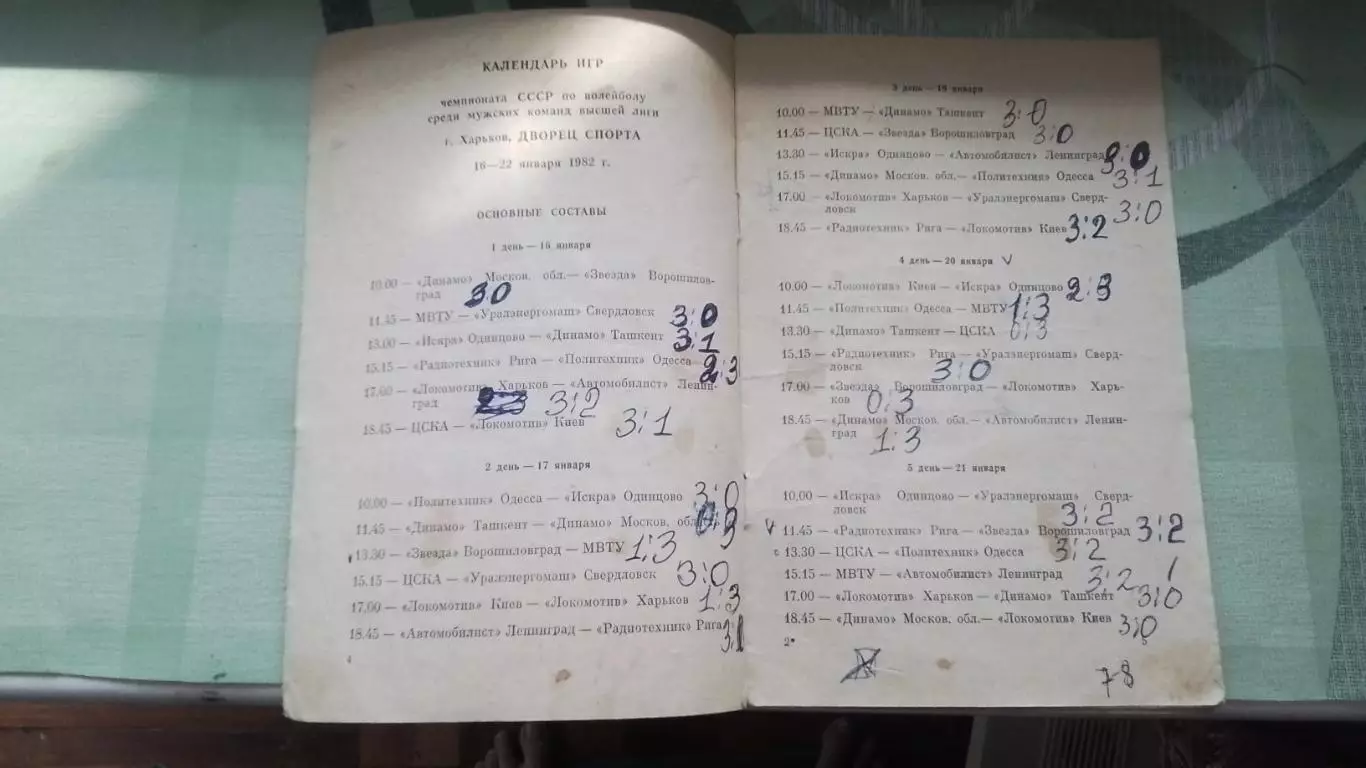 КАЛЕНДАРЬ ИГР
чемпионата СССР по волейболу
среди мужских команд высшей лиги
г. Харьков, ДВОРЕЦ СПОРТА
16—22 января 1982 г.
ОСНОВНЫЕ СОСТАВЫ
1 день — 16 января
10.00 — «Динамо» Москов. обл.— «Звезда» Ворошилов-
град 3:0
11.45 — МВТУ — «Уралэнергомаш» Свердловск 3:0
13.00 — «Искра» Одинцово — «Динамо» Ташкент 3:1
15.15 — «Радиотехник» Рига — «Политехник» Одесса 2:3
17.00 — «Локомотив» Харьков — «Автомобилист» Ленин-
град 3:2
18.45 — ЦСКА — «Локомотив» Киев 3:1
2 день — 17 января
10.00 — «Политехник» Одесса — «Искра» Одинцово 3:0
11.45 — «Динамо» Ташкент — «Динамо» Москов. обл.
13.30 — «Звезда» Ворошиловград — МВТУ 1:3
15.15 — ЦСКА — «Уралэнергомаш» Свердловск 3:0
17.00 — «Локомотив» Киев — «Локомотив» Харьков 1:3
18.45 — «Автомобилист» Ленинград — «Радиотехник» Рига 3:1
4
3 день — 19 января
10.00 — МВТУ — «Динамо» Ташкент 3:0
11.45 — ЦСКА — «Звезда» Ворошиловград 3:0
13.30 — «Искра» Одинцово — «Автомобилист» Ленинград 3:0
15.15 — «Динамо» Москов. обл.— «Политехник» Одесса 3:1
17.00 — «Локомотив» Харьков — «Уралэнергомаш» Сверд-
ловск 3:0
18.45 — «Радиотехник» Рига — «Локомотив» Киев 3:2
4 день — 20 января V
10.00 — «Локомотив» Киев — «Искра» Одинцово 2:3
11.45 — «Политехник» Одесса — МВТУ 1:3
13.30 — «Динамо» Ташкент — ЦСКА 0:3
15.15 — «Радиотехник» Рига — «Уралэнергомаш» Сверд-
ловск 3:0
17.00 — «Звезда» Ворошиловград — «Локомотив» Харь-
ков 0:3
18.45 — «Динамо» Москов. обл. — «Автомобилист» Ленин-
град 1:3
5 день — 21 января
10.00 — «Искра» Одинцово — «Уралэнергомаш» Сверд-
ловск 3:2
V 11.45 — «Радиотехник» Рига — «Звезда» Ворошиловград 3:2
13.30 — ЦСКА — «Политехник» Одесса 3:2
15.15 — МВТУ — «Автомобилист» Ленинград 3:2
17.00 — «Локомотив» Харьков — «Динамо» Ташкент 3:0
18.45 — «Динамо» Москов. обл.— «Локомотив» Киев 3:0
2*
7-8